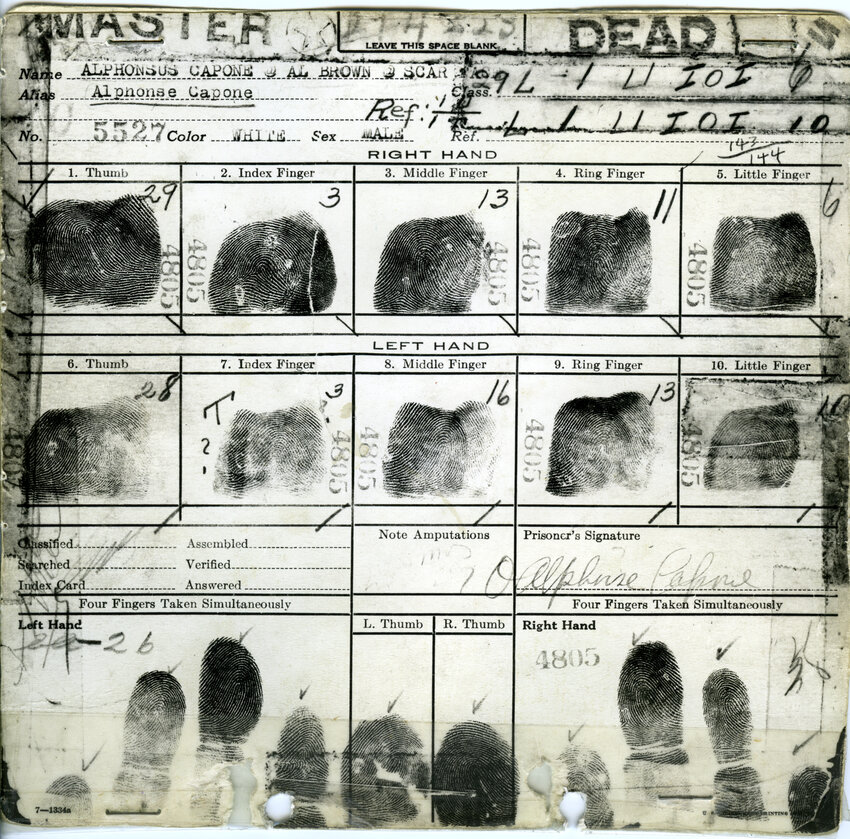 MASTER
DEAD
LEAVE THIS SPACE BLANK
Name ALPHONSUS CAPONE @ AL BROWN @ SCAR
Class. 9 1 U IOI 6
Alias Alphonse Capone
Ref: 1 U IOI 10
No. 5527 Color WHITE Sex MALE Ref.
143
144
RIGHT HAND
1. Thumb 2. Index Finger 3. Middle Finger 4. Ring Finger 5. Little Finger
29 3 13 11 6
4805 4805 4805 4805 4805
LEFT HAND
6. Thumb 7. Index Finger 8. Middle Finger 9. Ring Finger 10. Little Finger
28 T ? 3 16 13 10
4805 4805 4805 4805 4805
Classified Assembled
Searched Verified
Index Card Answered
Note Amputations
Prisoner's Signature
Alphonse Capone
Four Fingers Taken Simultaneously
Four Fingers Taken Simultaneously
Left Hand
L. Thumb R. Thumb
Right Hand
26
4805
7—1334a